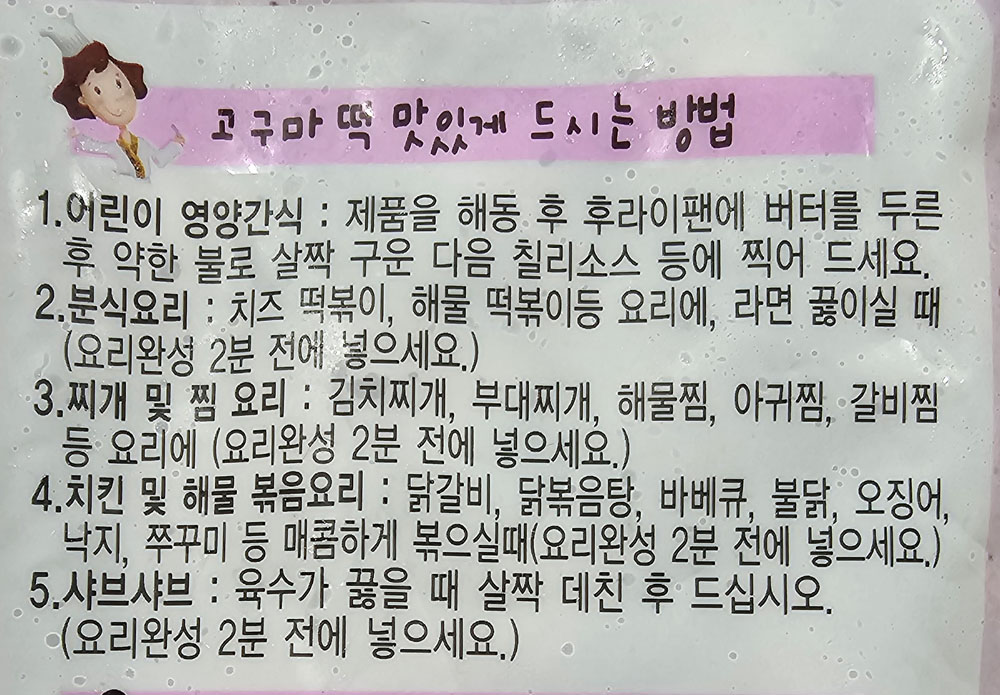 고구마 떡 맛있게 드시는 방법
1.어린이 영양간식 : 제품을 해동 후 후라이팬에 버터를 두른
후 약한 불로 살짝 구운 다음 칠리소스 등에 찍어 드세요.
2.분식요리 : 치즈 떡볶이, 해물 떡볶이등 요리에, 라면 끓이실 때
(요리완성 2분 전에 넣으세요.)
3.찌개 및 찜 요리 : 김치찌개, 부대찌개, 해물찜, 아귀찜, 갈비찜
등 요리에 (요리완성 2분 전에 넣으세요.)
4.치킨 및 해물 볶음요리 : 닭갈비, 닭볶음탕, 바베큐, 불닭, 오징어,
낙지, 쭈꾸미 등 매콤하게 볶으실때(요리완성 2분 전에 넣으세요.)
5.샤브샤브 : 육수가 끓을 때 살짝 데친 후 드십시오.
(요리완성 2분 전에 넣으세요.)